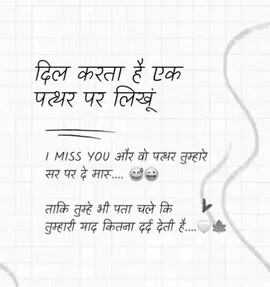 दिल करता है एक
पत्थर पर लिखूं
I MISS YOU और वो पत्थर तुम्हारे
सर पर दे मारू.... 😅😜
ताकि तुम्हे भी पता चले कि
तुम्हारी याद कितना दर्द देती है....🤍🍁